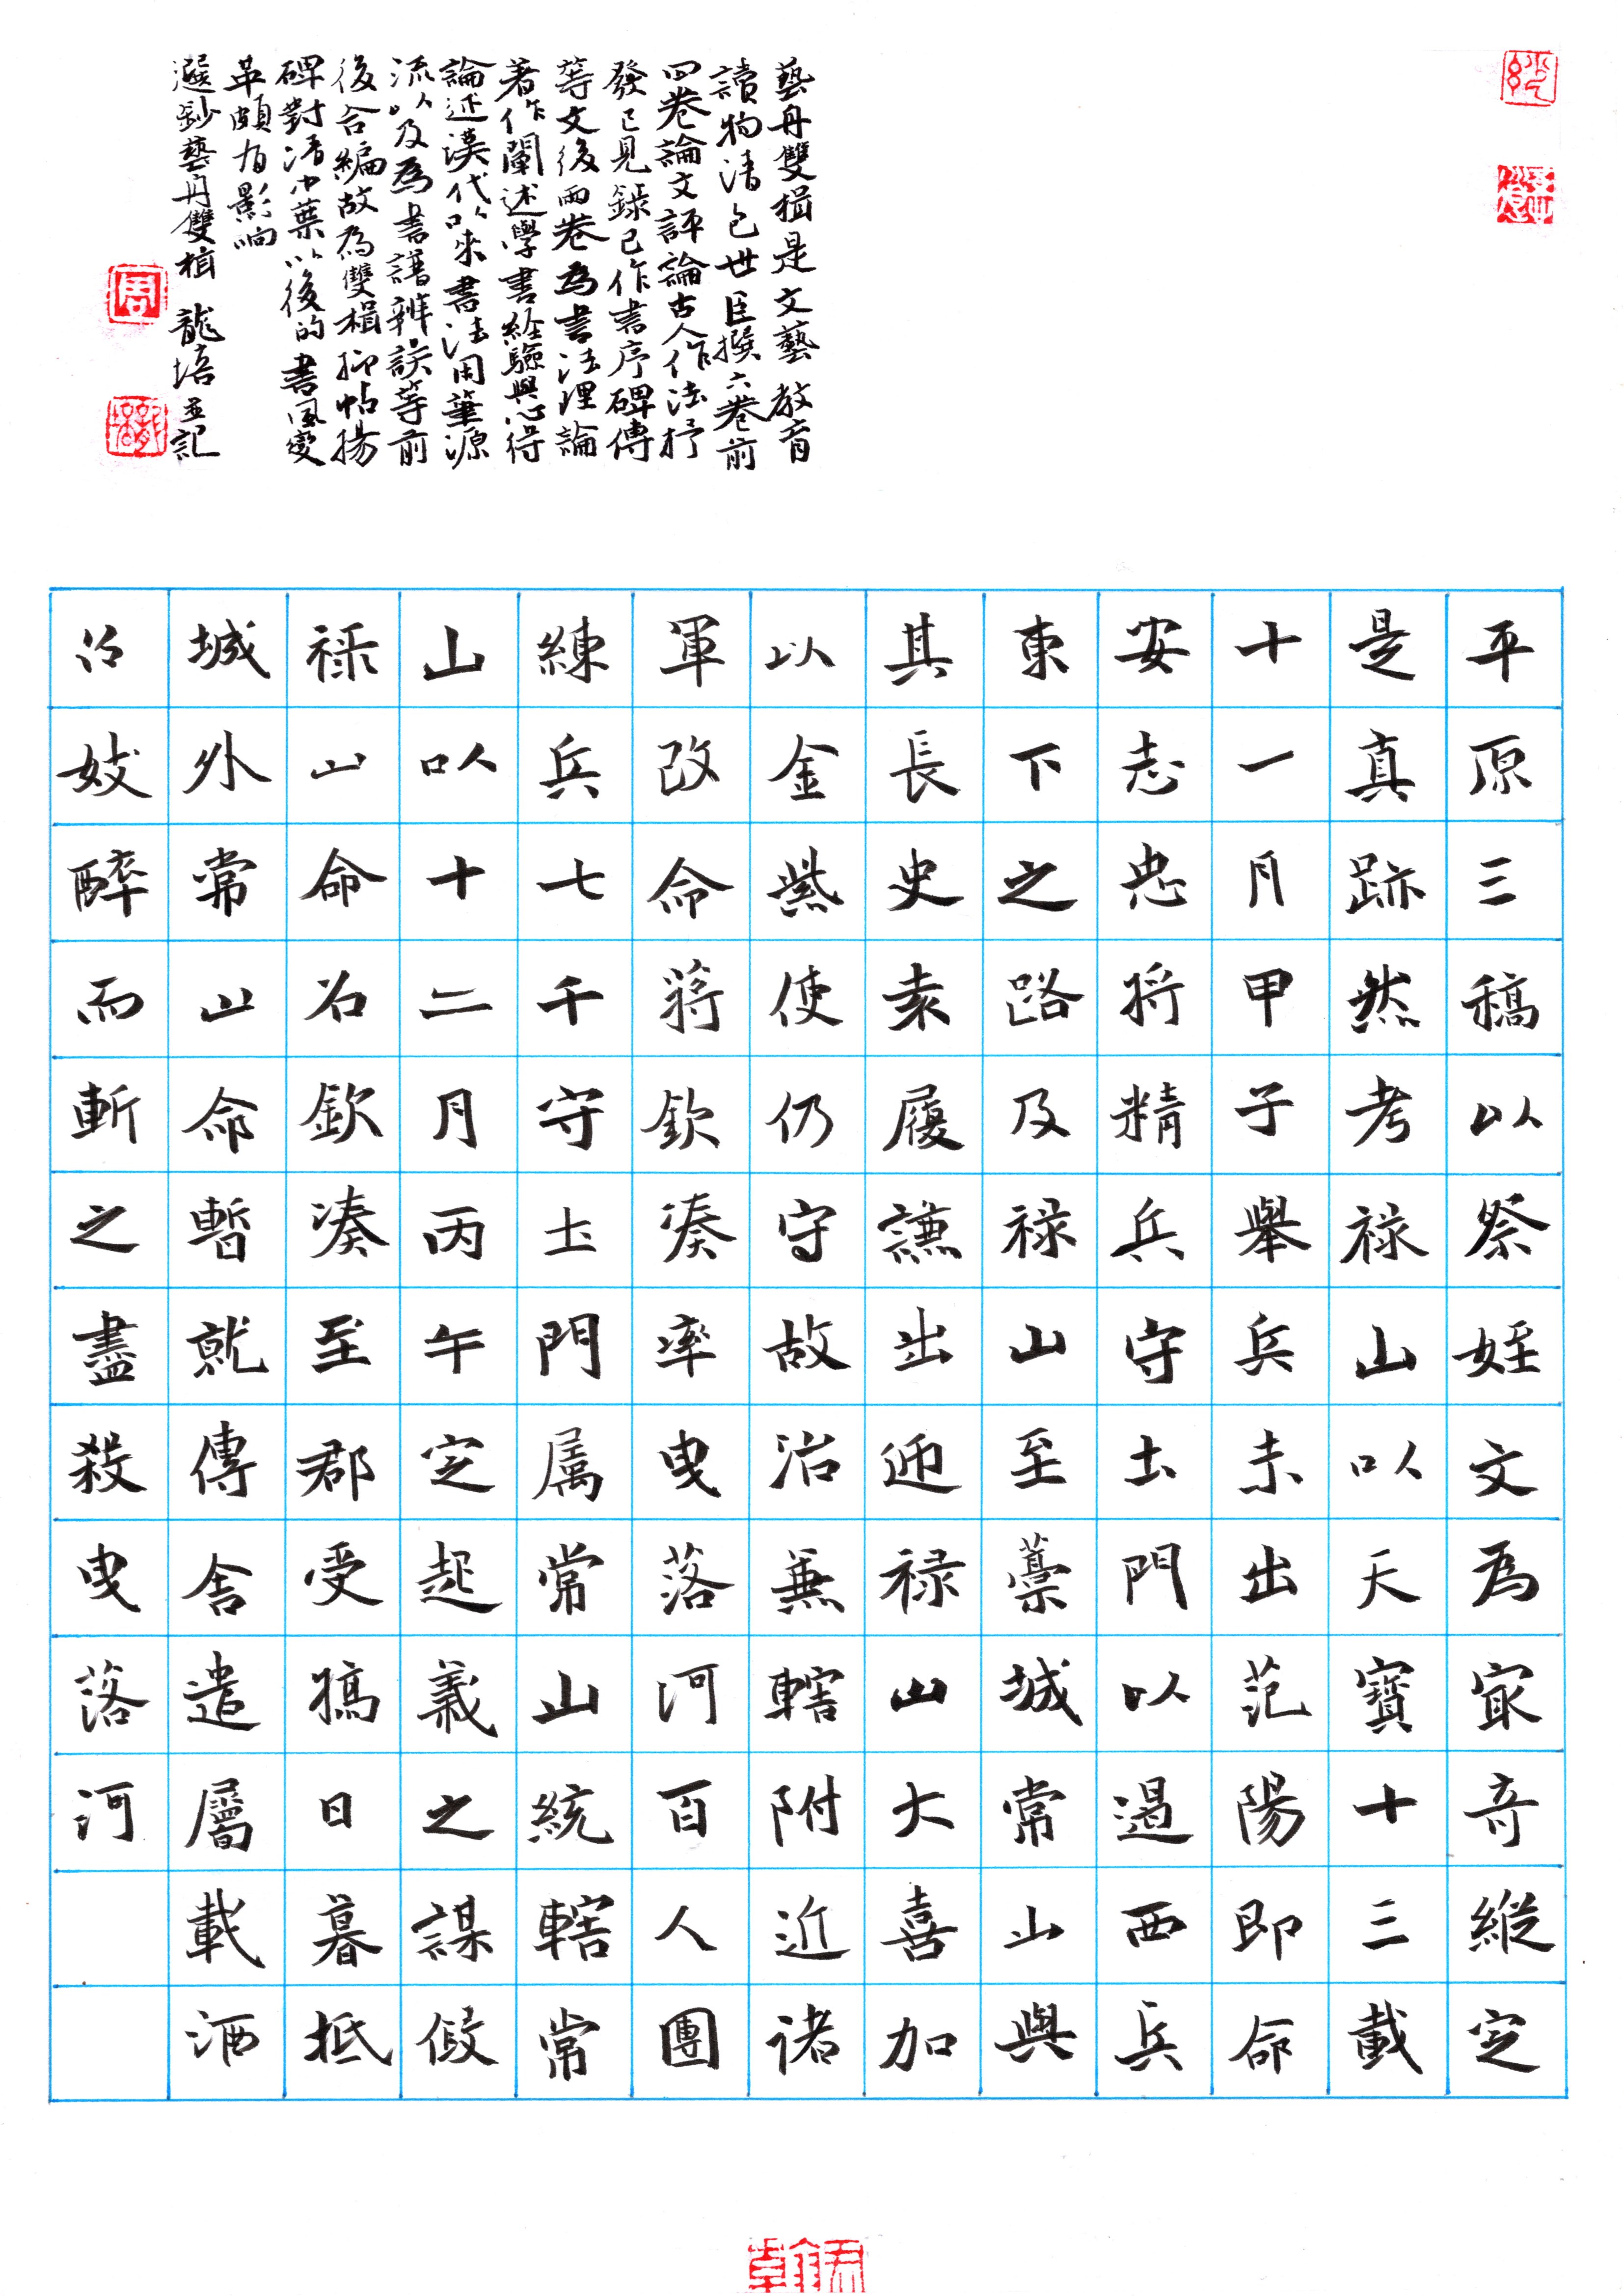 藝舟雙楫是文藝教育
讀物清包世臣撰六卷前
四卷論文評論古人作法抒
發己見錄己作書序碑傳
等文後兩卷為書法理論
著作闡述學書經驗與心得
論述漢代以來書法用筆源
流以及為書譜辨誤等前
後合編故為雙楫抑帖揚
碑對清中葉以後的書風變
革頗有影响
選鈔藝舟雙楫 龍培並記
平原三稿以祭姪文為冣奇縱定
是真跡然考祿山以天寶十三載
十一月甲子舉兵未出范陽即命
安志忠將精兵守土門以遏西兵
東下之路及祿山至藁城常山與
其長史袁履謙出迎祿山大喜加
以金紫使仍守故治兼轄附近諸
軍改命蔣欽湊率曳落河百人團
練兵七千守土門属常山統轄常
山以十二月丙午定起義之謀假
祿山命召欽湊至郡受犒日暮抵
城外常山命暫就傳舍遣屬載酒
召妓醉而斬之盡殺曳落河